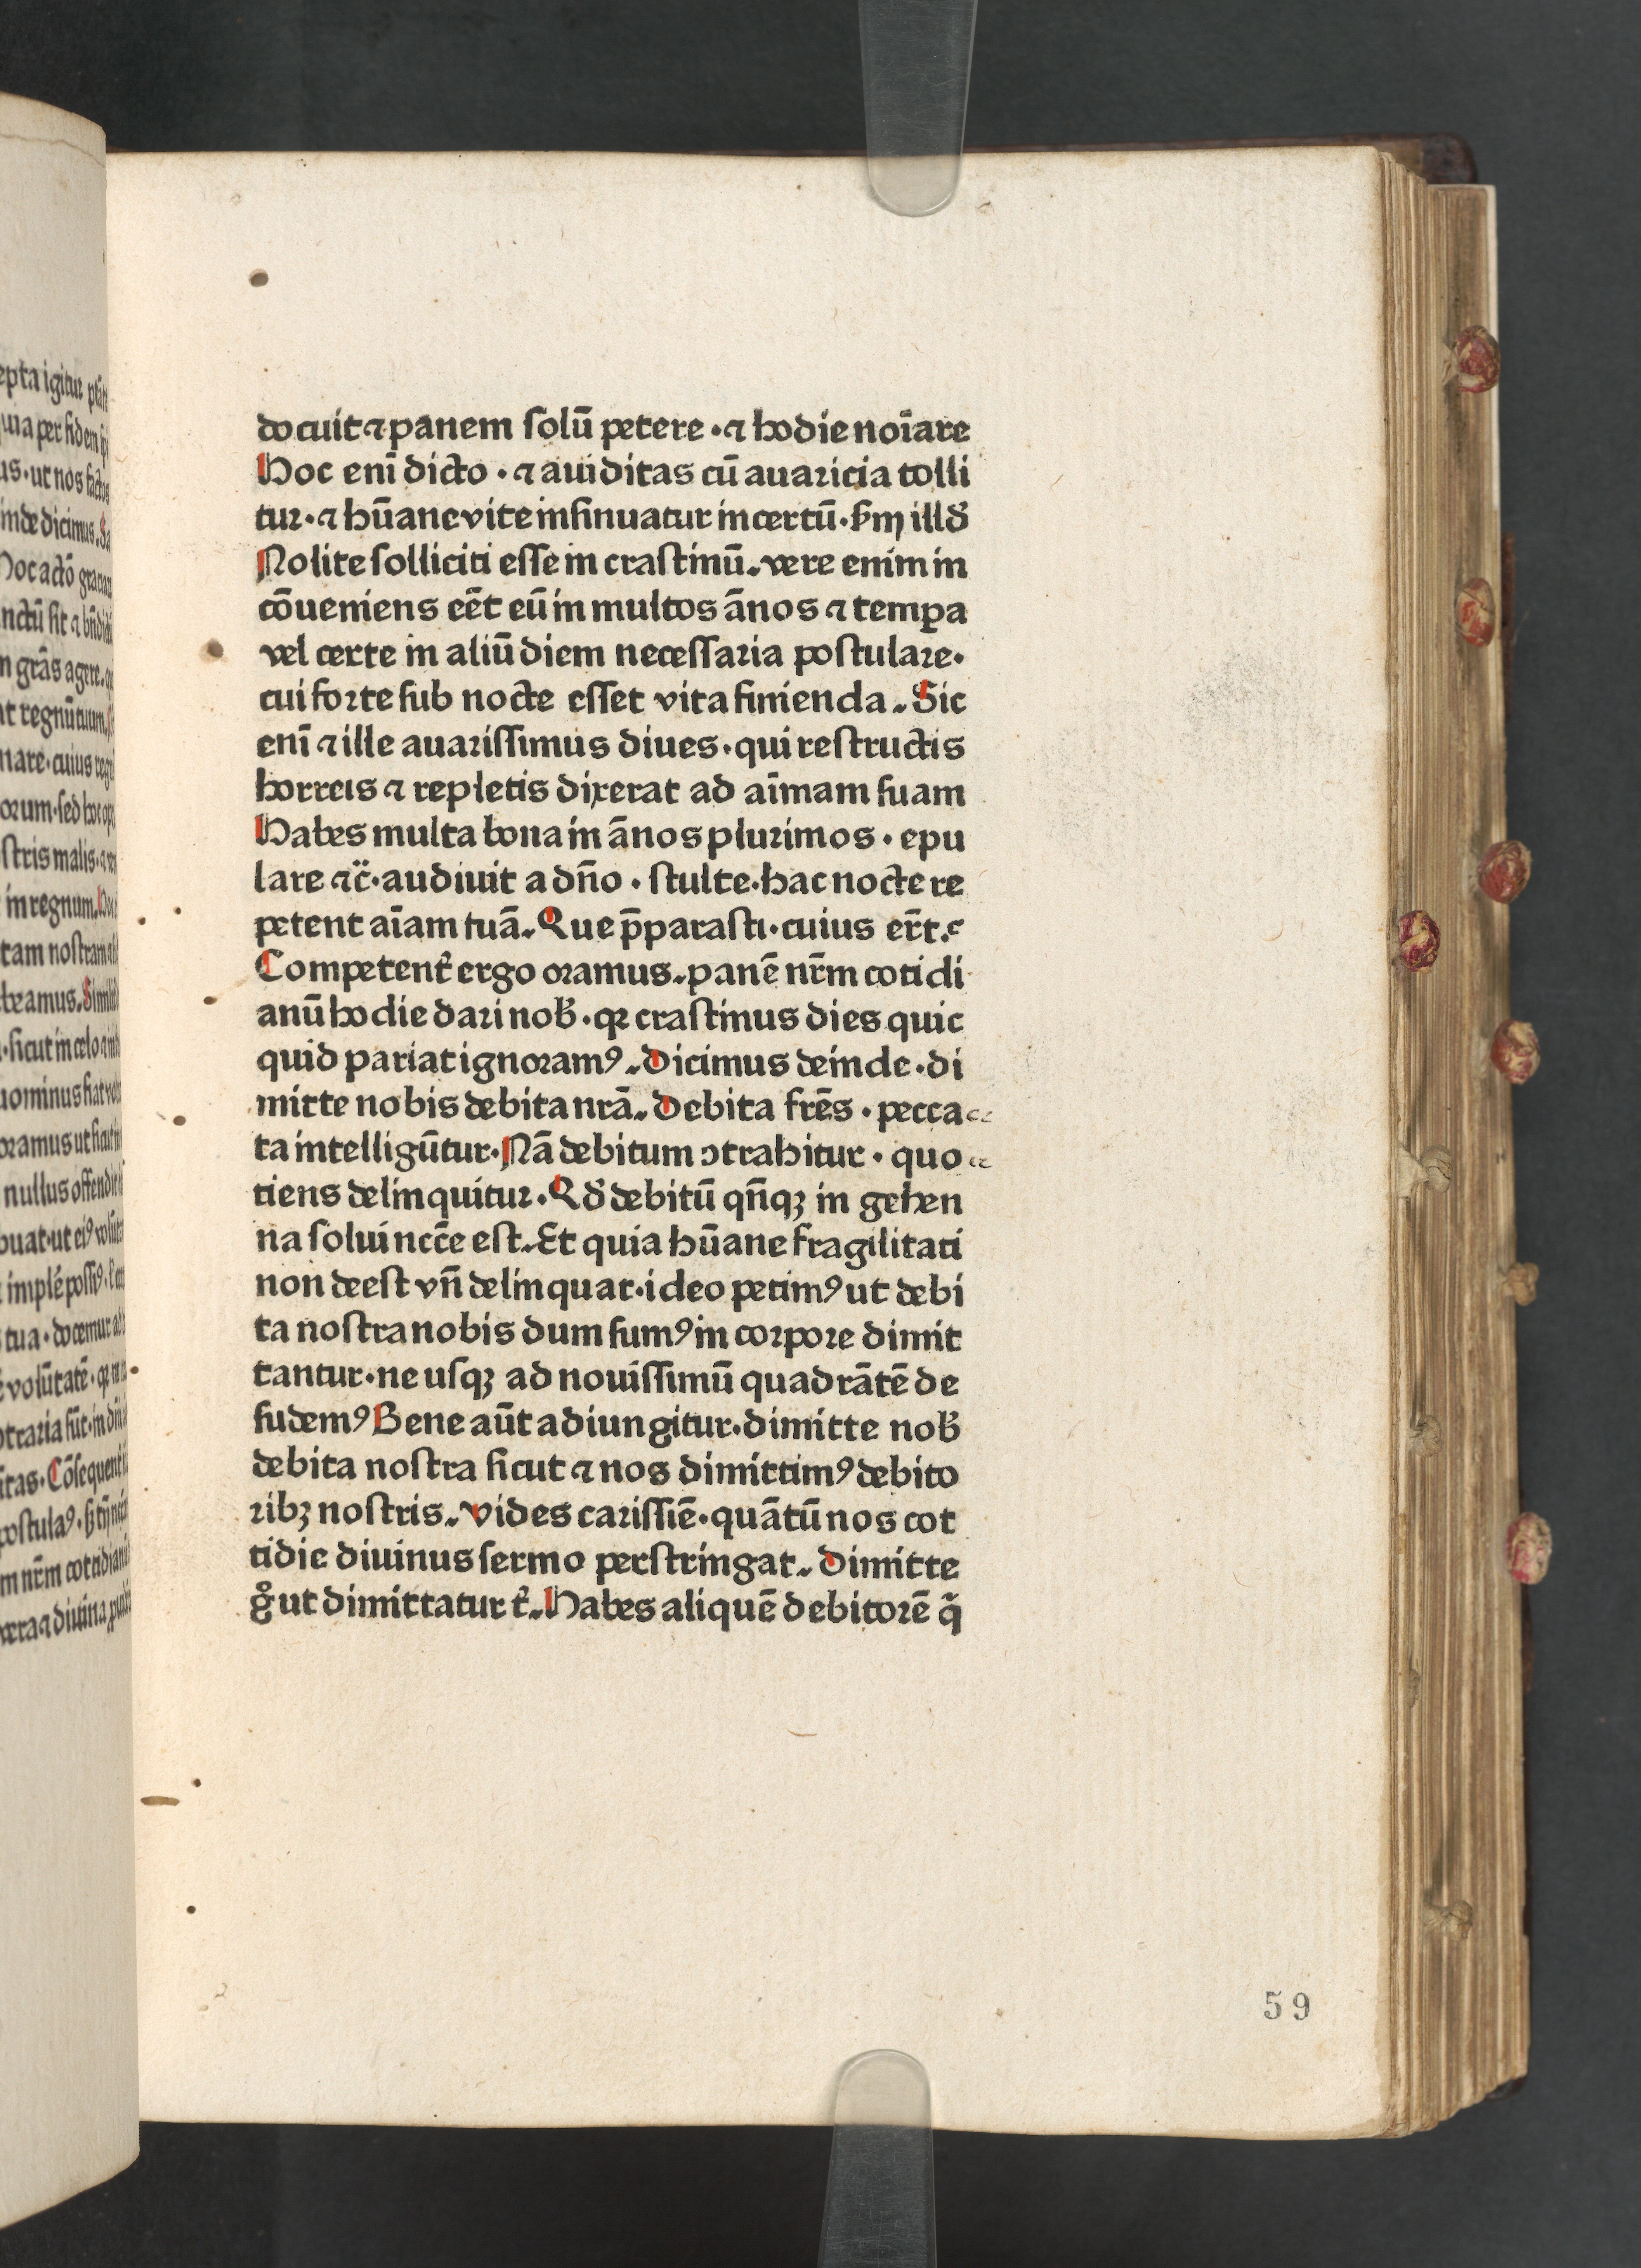 docuit ⁊ panem solū petere · ⁊ hodie noīare
Hoc enī dicto · ⁊ auiditas cū auaricia tolli
tur · ⁊ hūane vite insinuatur incertū · ẜm illđ
Nolite solliciti esse in crastinū. vere enim in
cōueniens eēt eū in multos ānos ⁊ temꝑa
vel certe in aliū diem necessaria postulare·
cui forte sub nocte esset vita finienda. Sic
enī ⁊ ille auarissimus diues · qui restructis
horreis ⁊ repletis dixerat ad aīmam suam
Habes multa bona in ānos plurimos · epu
lare ⁊c̄· audiuit a dn̄o · stulte · hac nocte re
petent aīam tuā. Que p̄parasti · cuius er̄t.
Competent͛ ergo oramus. panē nr̄m cotidi
anū hodie dari nob̄ · qꝛ crastinus dies quic
quid pariat ignoramꝰ. Dicimus deinde · di
mitte nobis debita nrā. Debita fr̄es · pecca
ta intelligūtur · Nā debitum ↄtrahitur · quo
tiens delinquitur · Qđ debitū qn̄qꝫ in gehen
na solui nc̄ce est. Et quia hūane fragilitati
non deest vn̄ delinquat · ideo petimꝰ ut debi
ta nostra nobis dum sumꝰ in corpore dimit
tantur · ne usqꝫ ad nouissimū quadrātē de
sudemꝰ Bene aūt adiungitur · dimitte nob̄
debita nostra sicut ⁊ nos dimittimꝰ debito
ribꝫ nostris. Vides carissīe · quātū nos cot
tidie diuinus sermo perstringat. Dimitte
gͦ ut dimittatur t͛. Habes aliquē debitorē q̄
59